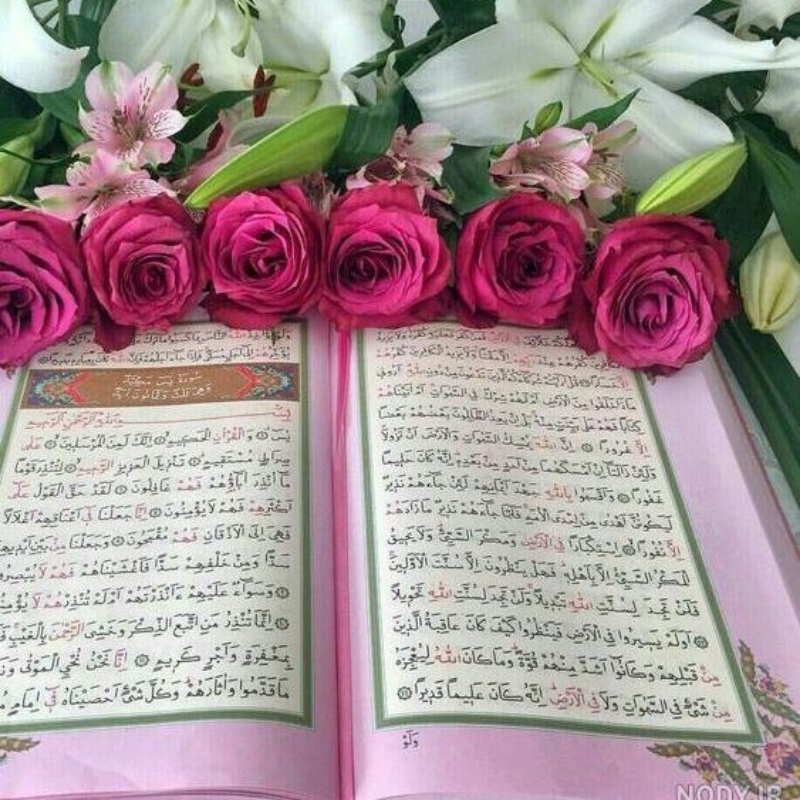 فَمَنْ كَفَرَ فَعَلَيْهِ كُفْرُهُ وَلَا يَزِيدُ
الْكَافِرِينَ كُفْرُهُمْ عِنْدَ رَبِّهِمْ اِلَّا مَقْتًا وَلَا يَزِيدُ الْكَافِرِينَ كُفْرُهُمْ
اِلَّا خَسَارًا قُلْ اَرَاَيْتُمْ شُرَكَاءَكُمُ الَّذِينَ تَدْعُونَ مِنْ دُونِ
مَاذَا خَلَقُوا مِنَ الْاَرْضِ اَمْ لَهُمْ شِرْكٌ فِي السَّمٰوَاتِ اَمْ اٰتَيْنَاهُمْ
كِتَابًا فَهُمْ عَلٰى بَيِّنَتٍ مِنْهُ بَلْ اِنْ يَعِدُ الظَّالِمُونَ بَعْضُهُمْ بَعْضًا
اِلَّا غُرُورًا اِنَّ اللّٰهَ يُمْسِكُ السَّمٰوَاتِ وَالْاَرْضَ اَنْ تَزُولَا
وَلَئِنْ زَالَتَا اِنْ اَمْسَكَهُمَا مِنْ اَحَدٍ مِنْ بَعْدِهِ اِنَّهُ كَانَ حَلِيمًا
غَفُورًا وَاَقْسَمُوا بِاللّٰهِ جَهْدَ اَيْمَانِهِمْ لَئِنْ جَاءَهُمْ نَذِيرٌ
لَيَكُونُنَّ اَهْدٰى مِنْ اِحْدَى الْاُمَمِ فَلَمَّا جَاءَهُمْ نَذِيرٌ مَا زَادَهُمْ
اِلَّا نُفُورًا اِسْتِكْبَارًا فِي الْاَرْضِ وَمَكْرَ السَّيِّئِ وَلَا يَحِيقُ
الْمَكْرُ السَّيِّئُ اِلَّا بِاَهْلِهِ فَهَلْ يَنْظُرُونَ اِلَّا سُنَّتَ الْاَوَّلِينَ
فَلَنْ تَجِدَ لِسُنَّتِ اللّٰهِ تَبْدِيلًا وَلَنْ تَجِدَ لِسُنَّتِ اللّٰهِ تَحْوِيلًا
اَوَلَمْ يَسِيرُوا فِي الْاَرْضِ فَيَنْظُرُوا كَيْفَ كَانَ عَاقِبَةُ الَّذِينَ
مِنْ قَبْلِهِمْ وَكَانُوا اَشَدَّ مِنْهُمْ قُوَّةً وَمَا كَانَ اللّٰهُ لِيُعْجِزَهُ
مِنْ شَيْءٍ فِي السَّمٰوَاتِ وَلَا فِي الْاَرْضِ اِنَّهُ كَانَ عَلِيمًا قَدِيرًا
وَلَوْ
وَلَوْ يُؤَاخِذُ اللّٰهُ النَّاسَ بِمَا كَسَبُوا مَا تَرَكَ
يُؤَخِّرُهُمْ اِلٰى اَجَلٍ مُسَمًّى فَاِذَا جَاءَ اَجَلُهُمْ فَاِنَّ اللّٰهَ كَانَ بِعِبَادِهِ بَصِيرًا
سُورَةُ يٰسٓ مَكِّيَّةٌ
وَهِيَ ثَلَاثٌ وَثَمَانُونَ اٰيَةً
بِسْمِ اللّٰهِ الرَّحْمٰنِ الرَّحِيمِ
يٰسٓ وَالْقُرْاٰنِ الْحَكِيمِ اِنَّكَ لَمِنَ الْمُرْسَلِينَ عَلٰى
صِرَاطٍ مُسْتَقِيمٍ تَنْزِيلَ الْعَزِيزِ الرَّحِيمِ لِتُنْذِرَ قَوْمًا
مَا اُنْذِرَ اٰبَاؤُهُمْ فَهُمْ غَافِلُونَ لَقَدْ حَقَّ الْقَوْلُ عَلٰى
اَكْثَرِهِمْ فَهُمْ لَا يُؤْمِنُونَ اِنَّا جَعَلْنَا فِي اَعْنَاقِهِمْ اَغْلَالًا
فَهِيَ اِلَى الْاَذْقَانِ فَهُمْ مُقْمَحُونَ وَجَعَلْنَا مِنْ بَيْنِ اَيْدِيهِمْ
سَدًّا وَمِنْ خَلْفِهِمْ سَدًّا فَاَغْشَيْنَاهُمْ فَهُمْ لَا يُبْصِرُونَ
وَسَوَاءٌ عَلَيْهِمْ ءَاَنْذَرْتَهُمْ اَمْ لَمْ تُنْذِرْهُمْ لَا يُؤْمِنُونَ
اِنَّمَا تُنْذِرُ مَنِ اتَّبَعَ الذِّكْرَ وَخَشِيَ الرَّحْمٰنَ بِالْغَيْبِ
بِمَغْفِرَةٍ وَاَجْرٍ كَرِيمٍ اِنَّا نَحْنُ نُحْيِ الْمَوْتٰى
مَا قَدَّمُوا وَاٰثَارَهُمْ وَكُلَّ شَيْءٍ اَحْصَيْنَاهُ فِي اِمَامٍ
NODY.IR